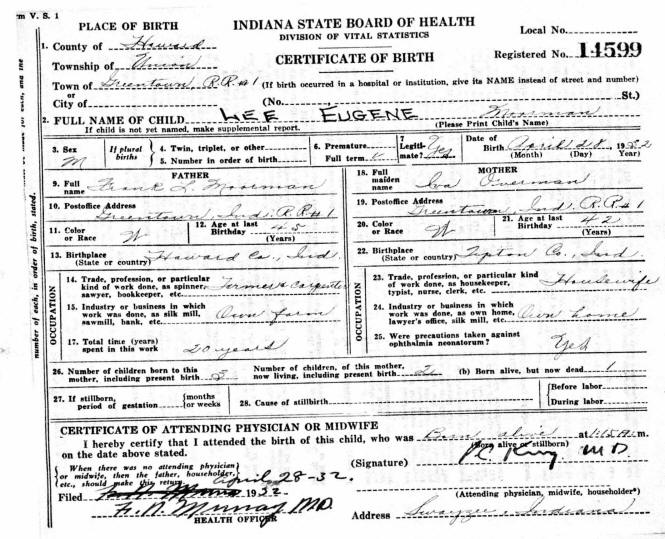 rm V. S. 1
PLACE OF BIRTH
INDIANA STATE BOARD OF HEALTH
DIVISION OF VITAL STATISTICS
CERTIFICATE OF BIRTH
Local No.
Registered No. 14599
1. County of Howard
Township of Union
Town of Greentown, R.R #1 (If birth occurred in a hospital or institution, give its NAME instead of street and number)
or
City of (No. St.)
2. FULL NAME OF CHILD LEE EUGENE Moorman
If child is not yet named, make supplemental report. (Please Print Child's Name)
3. Sex M
If plural births
4. Twin, triplet, or other
5. Number in order of birth
6. Premature
Full term ✓
7 Legitimate? Yes
Date of Birth April 28 1932
(Month) (Day) Year
FATHER
9. Full name Frank L. Moorman
10. Postoffice Address
Greentown, Ind. R.R #1
11. Color or Race W
12. Age at last Birthday 45 (Years)
13. Birthplace Howard Co., Ind
(State or country)
OCCUPATION
14. Trade, profession, or particular kind of work done, as spinner, sawyer, bookkeeper, etc. Farmer & Carpenter
15. Industry or business in which work was done, as silk mill, sawmill, bank, etc. Own farm
17. Total time (years) spent in this work 20 years
MOTHER
18. Full maiden name Iva Overman
19. Postoffice Address
Greentown, Ind. R.R #1
20. Color or Race W
21. Age at last Birthday 42 (Years)
22. Birthplace Tipton Co., Ind.
(State or country)
OCCUPATION
23. Trade, profession, or particular kind of work done, as housekeeper, typist, nurse, clerk, etc. Housewife
24. Industry or business in which work was done, as own home, lawyer's office, silk mill, etc. Own home
25. Were precautions taken against ophthalmia neonatorum? Yes
26. Number of children born to this mother, including present birth 3
Number of children, of this mother, now living, including present birth 2
(b) Born alive, but now dead 1
27. If stillborn, period of gestation {months or weeks
28. Cause of stillbirth
{Before labor
{During labor
CERTIFICATE OF ATTENDING PHYSICIAN OR MIDWIFE
I hereby certify that I attended the birth of this child, who was Born alive at m.
(Born alive or stillborn)
on the date above stated.
{When there was no attending physician or midwife, then the father, householder, etc., should make this return}
(Signature) King MD
April 28-32.
Filed 1932
F. N. Murray M.D.
HEALTH OFFICER
(Attending physician, midwife, householder*)
Address Swayzee Indiana
number of each, in order of birth, stated.